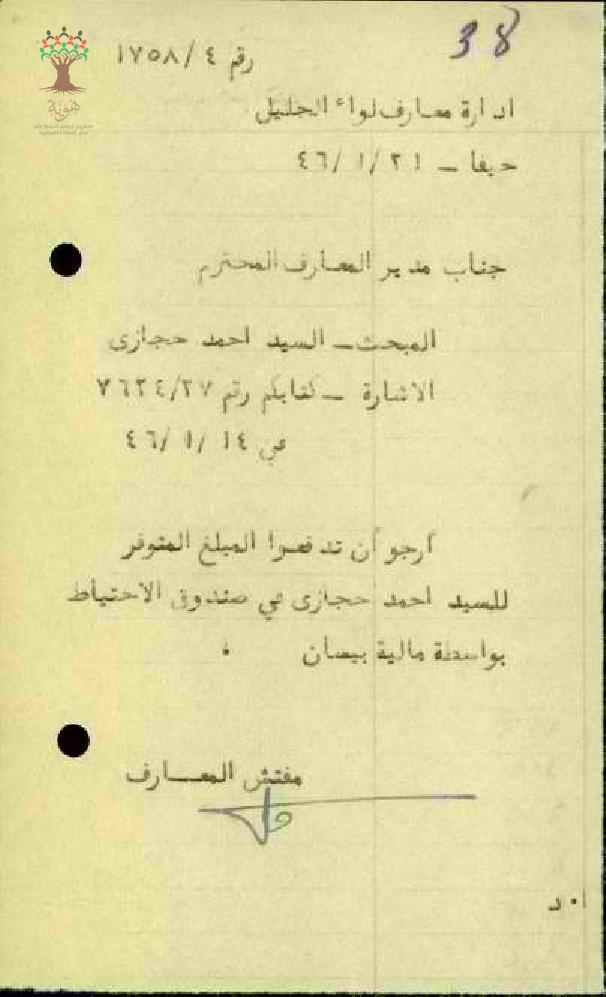 38
رقم ١٧٥٨/٤
هوية
ادارة معارف لواء الجليل
حيفا ــ ٤٦/١/٢١
جناب مدير المعارف المحترم
المبحث ــ السيد احمد حجازى
الاشارة ــ كتابكم رقم ٧٦٢٤/٢٧
في ٤٦/١/١٤
أرجو أن تدفعوا المبلغ المتوفر
للسيد احمد حجازى في صندوق الاحتياط
بواسطة مالية بيسان ٠
مفتش المعــارف
ا٠د